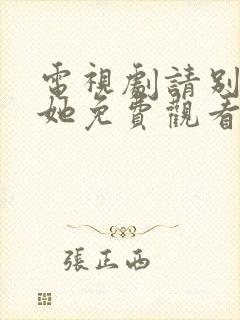 電視劇請別
她免費觀看
張正西